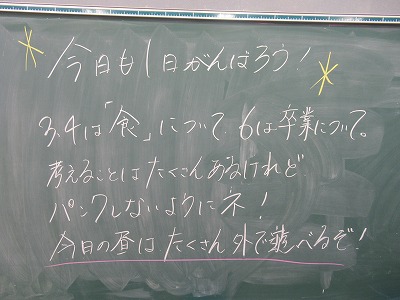 今日も1日がんばろう!
3、4は「食」について、6は卒業について。
考えることはたくさんあるけれど
パンクしないようにネ!
今日の昼はたくさん外で遊べるぞ!